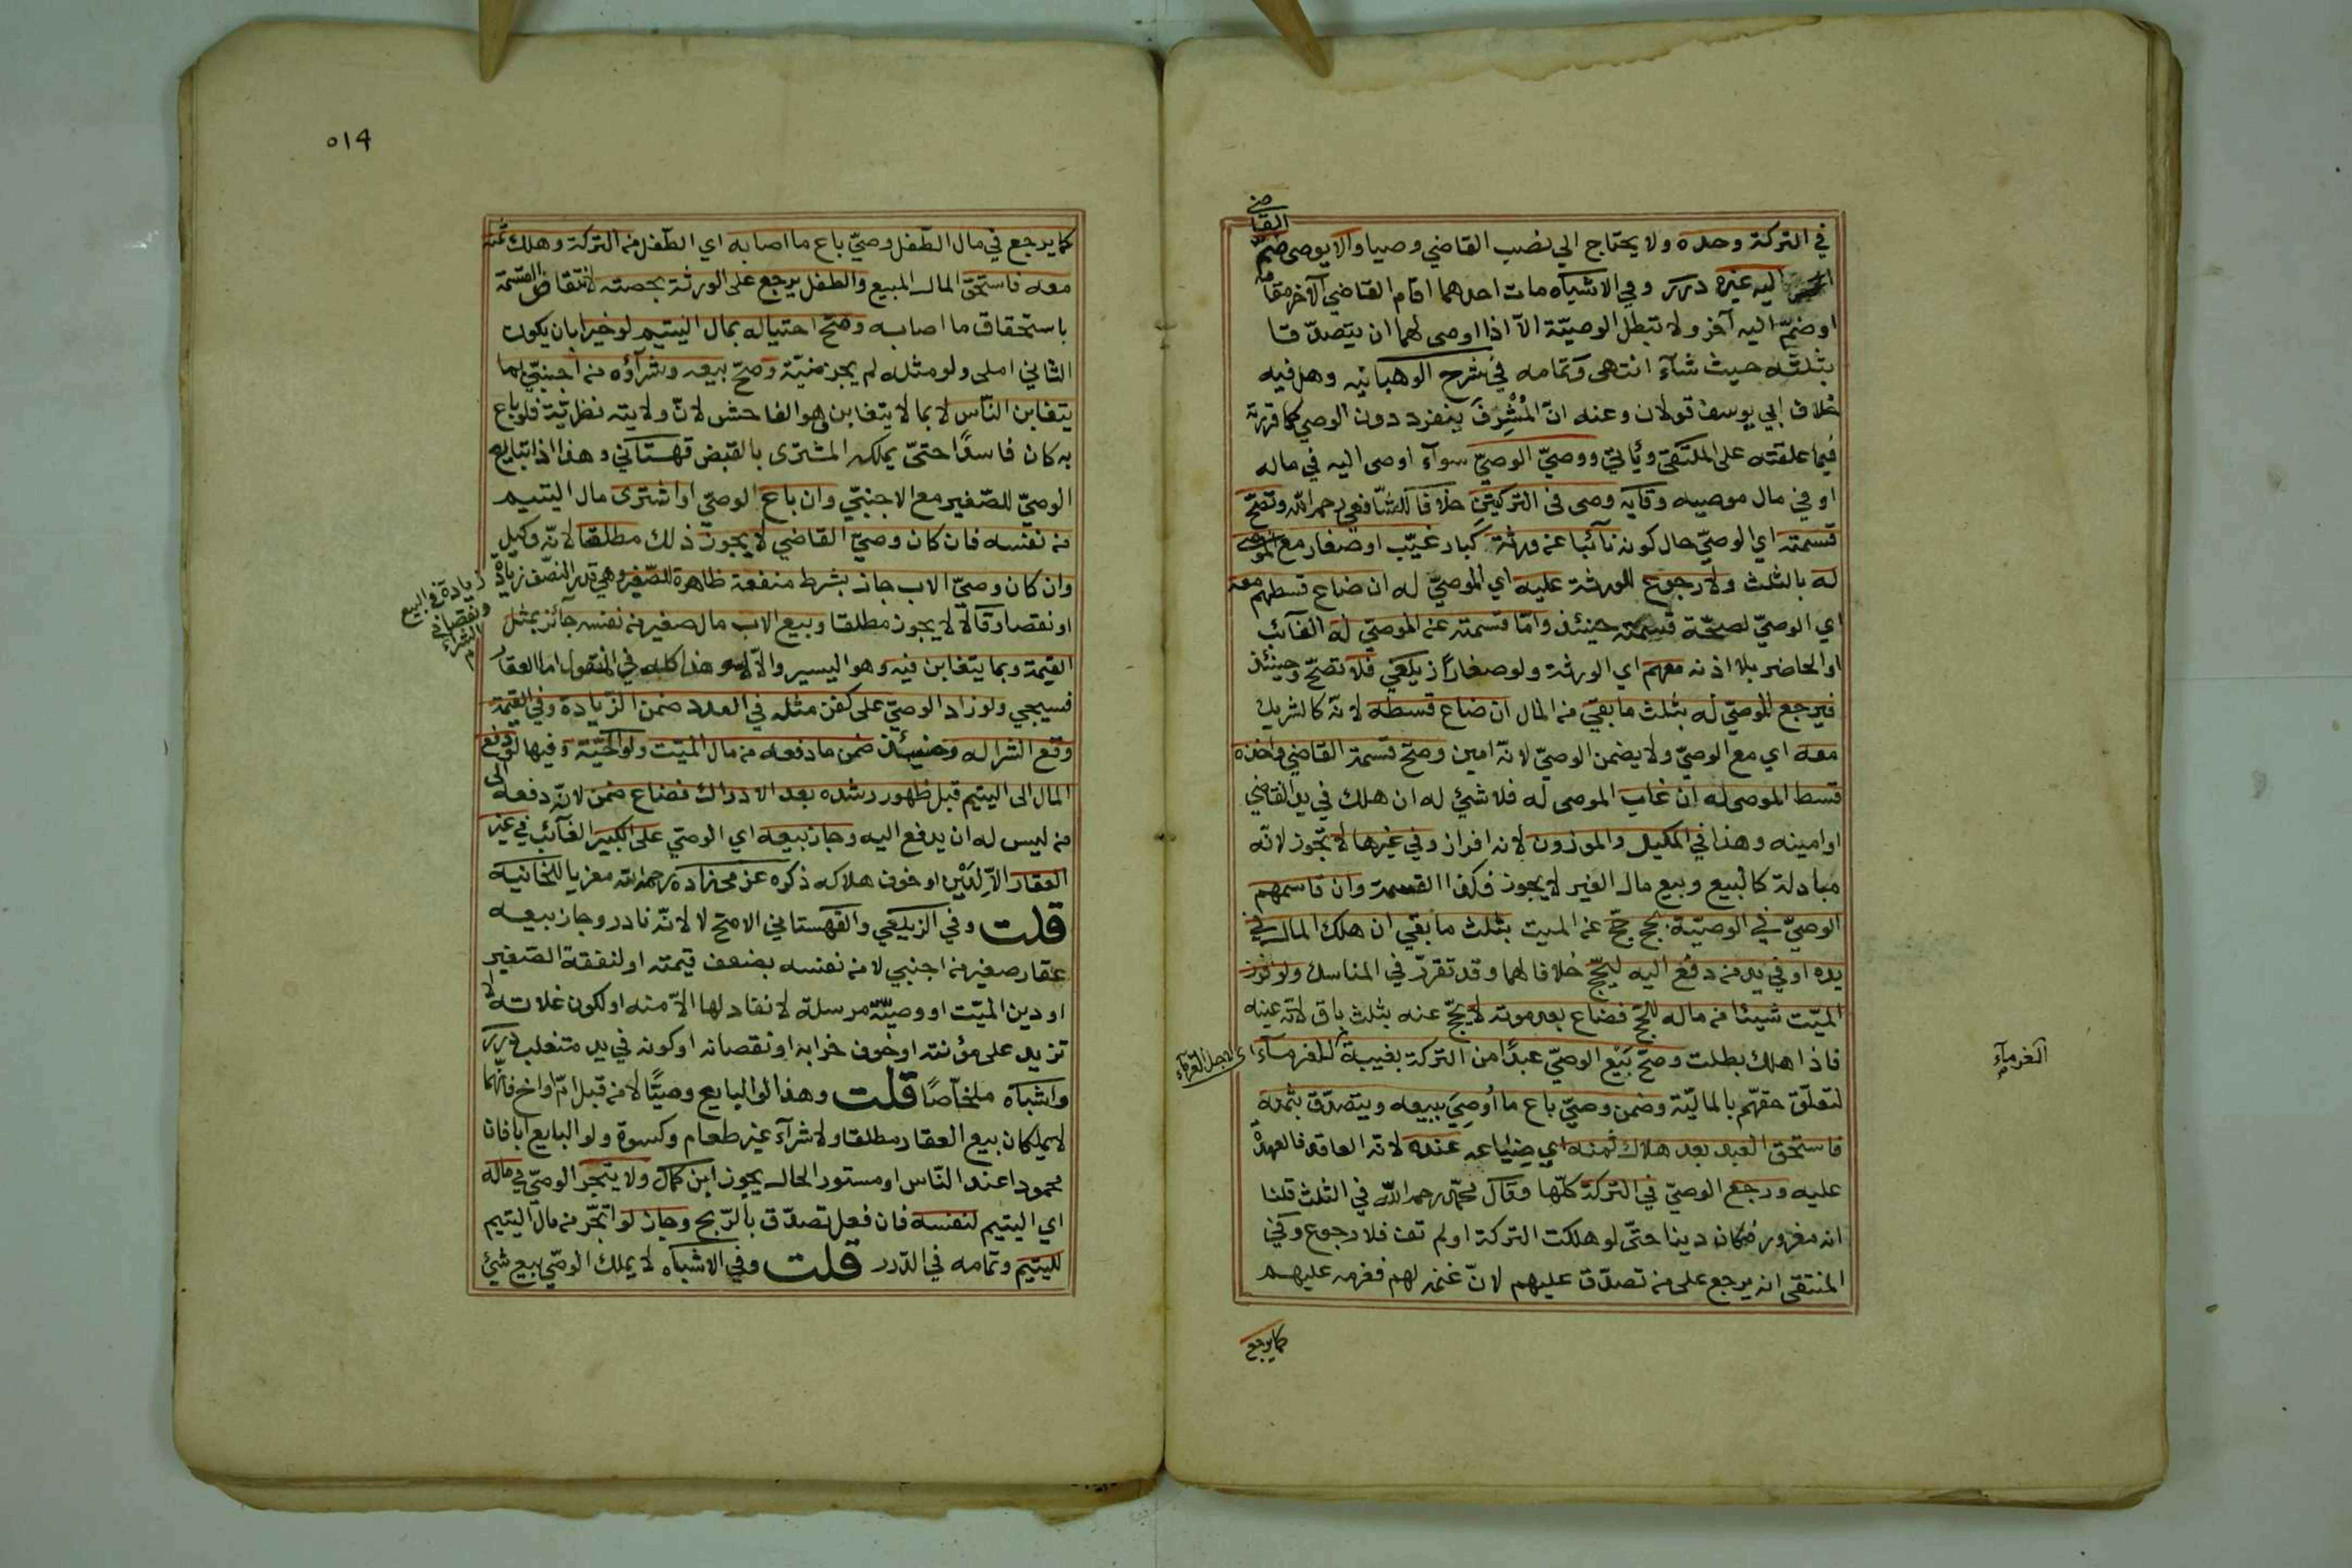 في التركة وحده ولا يحتاج الي نصب القاضي وصيا والا يوصي ضم
القاضي
اليه غيره درر وفي الاشباه مات احدهما اقام القاضي الآخر مقامه
او ضمّ اليه آخر ولا تبطل الوصيّة الّا اذا اوصى لهما ان يتصدّقا
بثلثه حيث شآء انتهى وتمامه في شرح الوهبانيه وهل فيه
خلاف ابي يوسف قولان وعنه انّ المُشْرِفَ ينفرد دون الوصي كما قررته
فيما علقته على الملتقي ويأتي ووصيّ الوصيّ سوآء اوصى اليه في ماله
او في مال موصيه وقايه وصى في التركتين خلافا للشّافعي رحمه اللّه وتصّح
قسمته اي الوصيّ حال كونه نآئبا عن ورثة كبار غيّب او صغار مع الموصي
له بالثلث ولا رجوع للورثة عليه اي الموصيّ له ان ضاع قسطهم معه
اي الوصيّ لصحّة قسمته حينئذ وامّا قسمته عن الموصيّ له الغآئب
او الحاضر بلا اذنه معهم اي الورثة ولو صغارًا زيلعي فلا تصّح وحينئذ
فيرجع الموصيّ له بثلث ما بقيّ من المال ان ضاع قسطه لانّه كالشريك
معه اي مع الوصيّ ولا يضمن الوصيّ لانّه امين وصحّ قسمة القاضي واخذه
قسط الموصى له ان غاب الموصى له فلا شئ له ان هلك في يد القاضي
او امينه وهذا في المكيل والموزون لانه افراز وفي غيرها لا تجّوز لانّه
مبادلة كالبيع وبيع مال الغير لا يجوز فكذا القسمة وان قاسمهم
الوصيّ في الوصيّة بحج حجّ عن الميت بثلث ما بقي ان هلك المال في
يده او في يد من دفع اليه ليحجّ خلافا لهما وقد تقرّر في المناسك ولو افرز
الميّت شيئا من ماله للحجّ فضاع بعد موته لا يحجّ عنه بثلث باق لانّه عينه
فاذا هلك بطلت وصحّ بَيْع الوصيّ عبدًا من التركة بغيبة الغرمآء
اي لاجل الغرمآء
الغرمآء
لتعلّق حقهّم بالماليّة وضمن وصيّ باع ما أُوصِيَ ببيعه ويتصدّق بثمنه
فاستحق العبد بعد هلاك ثمنه اي ضياعه عنده لانّه العاقد فالعهدة
عليه ورجع الوصيّ في التركة كلّها وقال محمّد رحمه اللّه في الثلث قلنا
انه مغرور فكان دينا حتّى لو هلكت التركة او لم تف فلا رجوع وفي
المنتقى انه يرجع على من تصدّق عليهم لانّ غنمه لهم فغرمه عليهم
كما يرجع
٥١٩
كما يرجع في مال الطّفل وصيّ باع ما اصابه اي الطّفل من التركة وهلك ثمنه
معه فاستحقّ المال المبيع والطفل يرجع على الورثة بحصته لانتقاض القسمة
باستحقاق ما اصابه وصحّ احتياله بمال اليتيم لو خيرا بان يكون
الثاني املى ولو مثله لم يجز منيّة وصحّ بيعه وشرآؤه من اجنبيّ بما
يتغابن النّاس لا بما لا يتغابن وهو الفاحش لانّ ولايته نظريّة فلو باع
به كان فاسدًا حتّى يملكه المشترى بالقبض قهستاني وهذا اذا تبايع
الوصيّ للصّغير مع الاجنبّي وان باع الوصيّ او اشترى مال اليتيم
من نفسه فان كان وصيّ القاضي لا يجوز ذلك مطلقا لانّه وكيل
وان كان وصيّ الاب جاز بشرط منفعة ظاهرة للصّغير وهي قدر النصّف زيادة
زيادة في البيع
ونقصا في
الشراء
او نقصا وقالا لا يجوز مطلقا وبيع الاب مال صغير من نفسه جآئز بمثل
القيمة وبما يتغابن فيه وهو اليسير والّا لا وهذا كله في المنقول اما العقار
فسيجي ولو زاد الوصيّ على كفن مثله في العدد ضمن الزّيادة وفي القيمة
وقع الشرا له وحينئذ ضمن ما دفعه من مال الميّت ولوالجيّة وفيها لو دفع
المال الى اليتيم قبل ظهور رشده بعد الادراك فضاع ضمن لانّه دفعه الى
من ليس له ان يدفع اليه وجاز بيعه اي الوصيّ على الكبير الغآئب في غير
العقار الّا لِدَيْنٍ او خوف هلاكه ذكره عزمي زاده رحمه اللّه معزيا للخانيه
قلت وفي الزيلعي والقهستاني الاصّح لا لانّه نادر وجاز بيعه
عقار صغير من اجنبي لا من نفسه بضعف قيمته او لنفقة الصّغير
او دين الميّت او وصيّة مرسلة لا نفاد لها الّا منه او لكون غلاته لا
تزيد على مؤنته او خوف خرابه او نقصانه او كونه في يد متغلب درر
واشباه ملخّصًا قلت وهذا لو البايع وصيًّا لا من قبل امّ او اخ فانّهما
لا يملكان بيع العقار مطلقا ولا شرآء غير طعام وكسوة ولو البايع ابا فان
محمودا عند النّاس او مستور الحال يجوز ابن كمال ولا يتّجر الوصيّ في ماله
اي اليتيم لنفسه فان فعل تصدّق بالرّبح وجاز لو اتّجر من مال اليتيم
لليتيم وتمامه في الدّرر قلت وفي الاشباه لا يملك الوصيّ بيع شئ